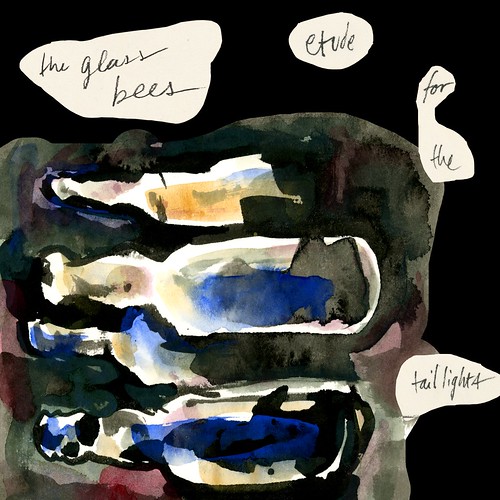 the glass
bees
etude
for
the
tail lights